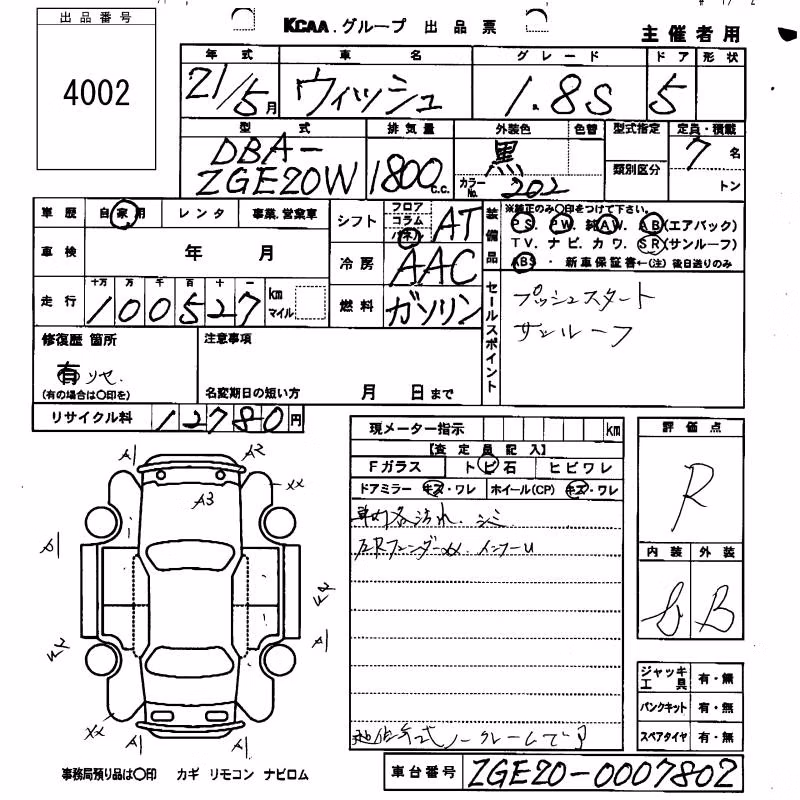 出品番号
4002
KCAA.グループ 出品票
主催者用
年式 車名 グレード ドア 形状
21/5月 ウィッシュ 1.8S 5
型式 排気量 外装色 色替 型式指定 定員・積載
DBA-
ZGE20W 1800c.c. 黒 カラーNo. 202 類別区分 7名
トン
車歴 自家用 レンタ 事業.営業車
車検 年 月
十万 万 千 百 十 一
走行 100527 km マイル
シフト フロア コラム パネル AT
冷房 AAC
燃料 ガソリン
装備品 ※純正のみ〇印をつけて下さい。
PS. PW. 純AW. AB(エアバック)
TV. ナビ. カワ. SR(サンルーフ)
ABS ・ 新車保証書←(注)後日送りのみ
セールスポイント
プッシュスタート
サンルーフ
修復歴 箇所
有
(有の場合は〇印を)
注意事項
名変期日の短い方 月 日まで
リサイクル料 12780円
現メーター指示 km
【査定員記入】
Fガラス トビ石 ヒビワレ
ドアミラー キズ・ワレ ホイール(CP) キズ・ワレ
A1 A2
A3
XX
A1
A1
XX
評価点
R
内装 外装
B
ジャッキ工具 有・無
パンクキット 有・無
スペアタイヤ 有・無
事務局預り品は〇印 カギ リモコン ナビロム
車台番号 ZGE20-0007802